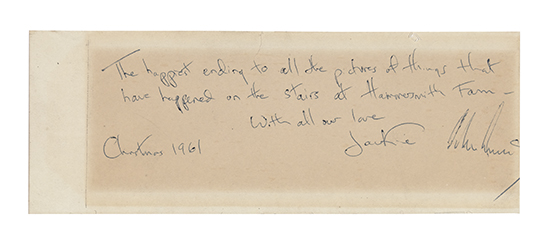 The happiest ending to all the pictures of things that
have happened on the stairs at Hammersmith Farm –
With all our love
Christmas 1961 Jackie